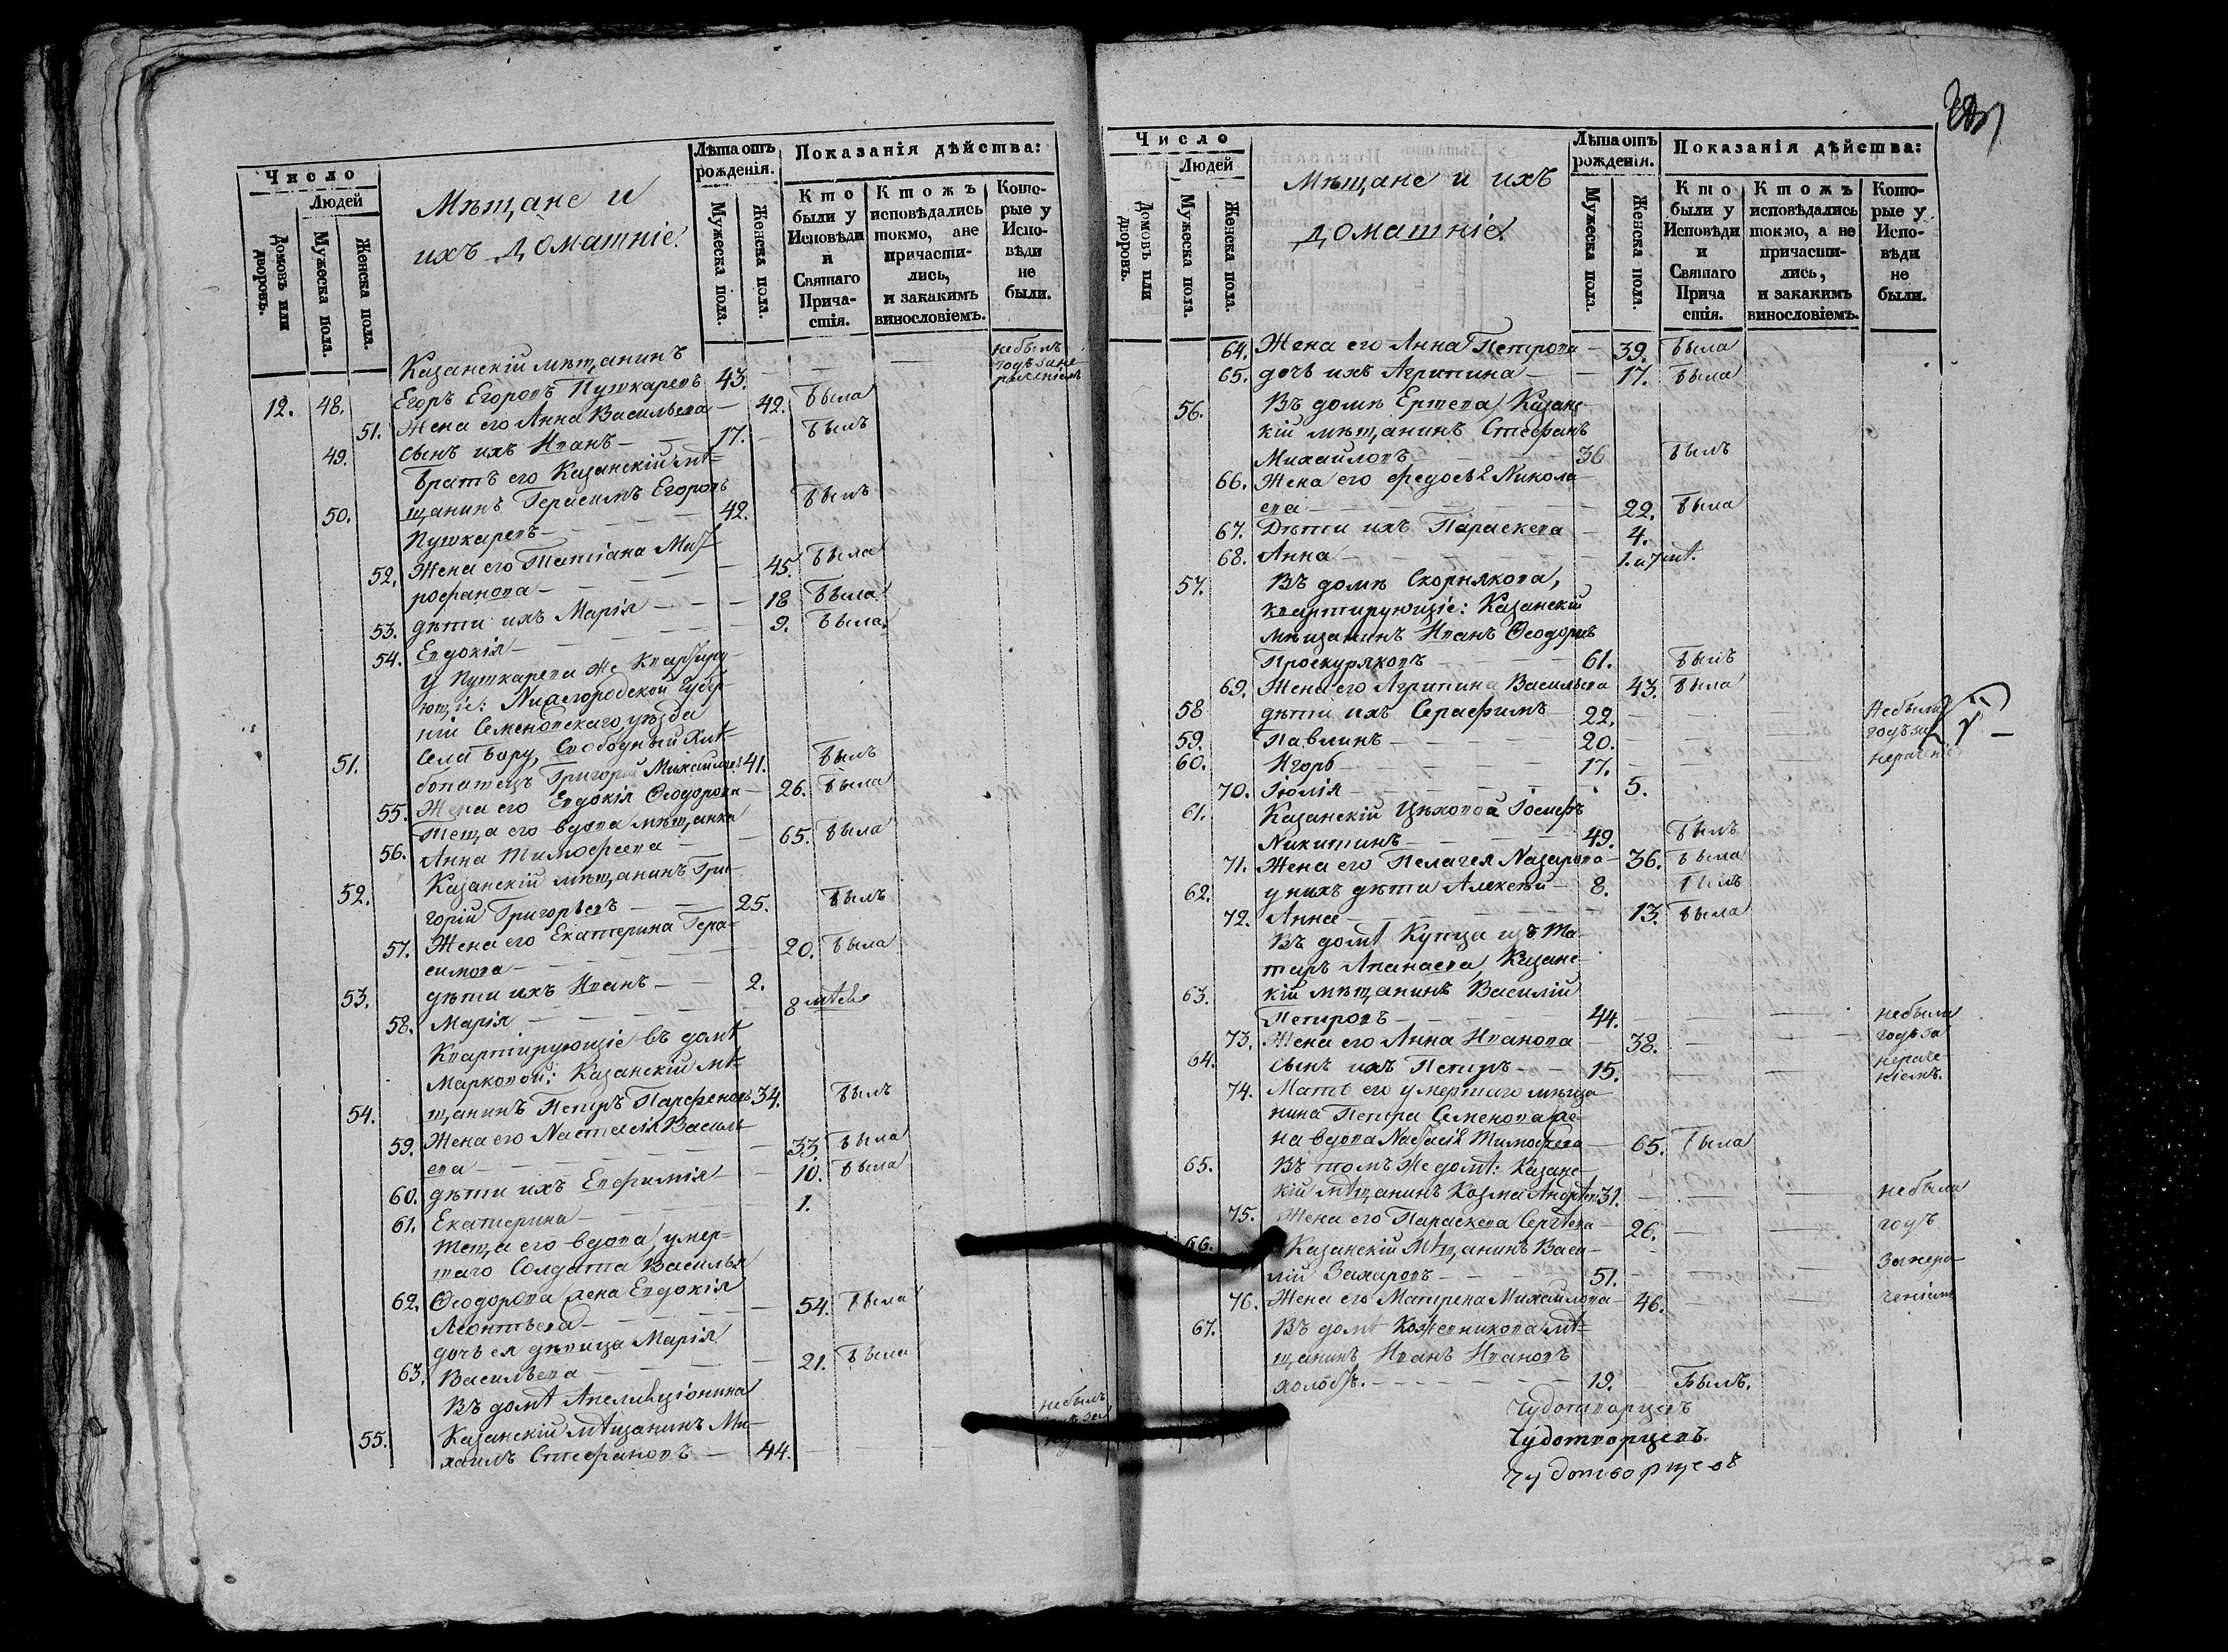 Число
Людей
Домовъ или дворовъ.
Мужеска пола.
Женска пола.
Мѣщане и
ихъ домашніе.
Лѣта отъ рожденія.
Мужеска пола.
Женска пола.
Показанія дѣйства:
Кто были у Исповѣди и Святаго Причастія.
Ктожъ исповѣдались токмо, ане причастились, и закакимъ винословіемъ.
Которые у Исповѣди не были.
Казанскій мѣщанинъ небылъ
12. 48. Егоръ Егоровъ Пушкаревъ 43.
51. Жена его Анна Васильева 42. была
49. сынъ ихъ Иванъ 17. былъ
братъ его Казанскій мѣ-
50. щанинъ Герасимъ Егоровъ былъ
Пушкаревъ 42.
52. Жена его Татіана Мит-
рофанова 45. была
53. дѣти ихъ Марія 18 была
54. Евдокія 9. была
У Пушкарева же квартиру-
ющіе: Нижегородской Губер-
ніи Семеновскаго уѣзда
51. Села Бору, Свободный хлѣ-
бопашецъ Григорій Михайловъ 41. былъ
55. Жена его Евдокія Ѳеодорова 26. была
теща его вдова мѣщанка
56. Анна Тимофеева 65. была
52. Казанскій мѣщанинъ Гри-
горій Григорьевъ 25. былъ
57. Жена его Екатерина Гера-
симова 20. была
53. дѣти ихъ Иванъ 2.
58. Марія 8
Квартирующіе въ домѣ
Марковой: Казанскій мѣ-
54. щанинъ Петръ Парфеновъ 34. былъ
59. Жена его Настасія Василь-
ева 33. была
60. дѣти ихъ Евфимія 10. была
61. Екатерина 1.
теща его вдова, умер-
шаго Солдата Василья
62. Ѳеодорова жена Евдокія
Леонтьева 54. была
дочь ея дѣвица Марія
63. Васильева 21. была
Въ домѣ Апелляціонина
55. Казанскій мѣщанинъ Ми- небылъ
хаилъ Стефановъ 44.
Число
Людей
Домовъ или дворовъ.
Мужеска пола.
Женска пола.
Мѣщане и ихъ
домашніе.
Лѣта отъ рожденія.
Мужеска пола.
Женска пола.
Показанія дѣйства:
Кто были у Исповѣди и Святаго Прича стія.
Ктожъ исповѣдались токмо, а не причастились, и закакимъ винословіемъ.
Которые у Исповѣди не были.
64. Жена его Анна Петрова 39. была
65. дочь ихъ Агрипина 17. была
56. Въ домѣ Ершева, Казанс-
кій мѣщанинъ Стефанъ
Михайловъ 36 былъ
66. Жена его Федосья Никола-
ева 22. была
67. Дѣти ихъ Параскева 4.
68. Анна 1.
57. Въ домѣ Скорнякова,
квартирующіе: Казанскій
мѣщанинъ Иванъ Ѳеодоровъ
Проскуряковъ 61. былъ
69. Жена его Агрипина Васильева 43. была
58 дѣти ихъ Серафимъ 22. небыли
59. Павлинъ 20. годъ за
60. Игорь 17.
70. Іюлія 5.
61. Казанскій Цѣховой Іосифъ
Никитинъ 49. былъ
71. Жена его Пелагея Назарова 36. была
62. у нихъ дѣти Алексѣй 8. былъ
72. Анна 13. была
Въ домѣ Купца изъ Та-
таръ Апанаева, Казанс-
63. кій мѣщанинъ Василій
Петровъ 44. небыли
73. Жена его Анна Иванова 38. годъ за
64. сынъ ихъ Петръ 15. нераче-
ніемъ.
74. Мать его умершаго мѣща-
нина Петра Семенова же-
на вдова Настасія Тимофеева 65. была
65. Въ томъ же домѣ: Казанс-
кій мѣщанинъ Козма Андреевъ 31. небыли
75. Жена его Параскева Сергѣева 26. годъ
66. Казанскій Мѣщанинъ Васи- за нера-
лій Захаровъ 51.
76. Жена его Матрена Михайлова 46. ченіемъ
67. Въ домѣ Кожевникова мѣ-
щанинъ Иванъ Ивановъ
холостъ. 19. Былъ.
Чудотворцевъ
Чудотворцевъ.
Чудотворцевъ